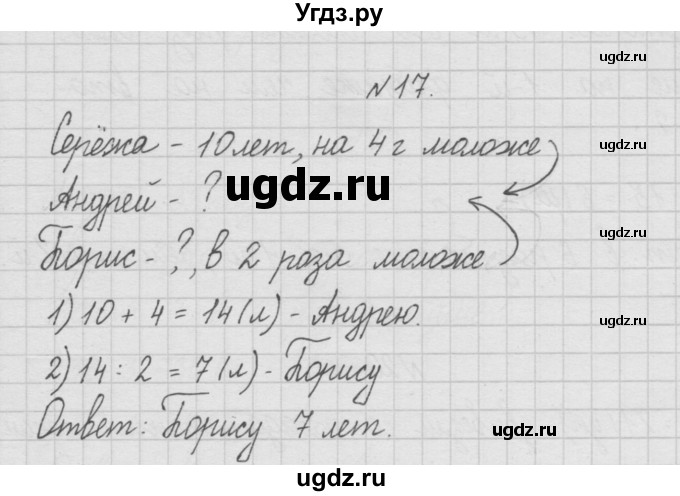 Угдз.ру
ugdz.ru
№17.
ugdz.ru
Серёжа - 10 лет, на 4 г моложе
Андрей - ?
ugdz.ru
ugdz.ru
Борис - ?, в 2 раза моложе
1) 10 + 4 = 14 (л) - Андрею.
ugdz.ru
2) 14 : 2 = 7 (л) - Борису
Ответ: Борису 7 лет.
ugdz.ru
ugdz.ru